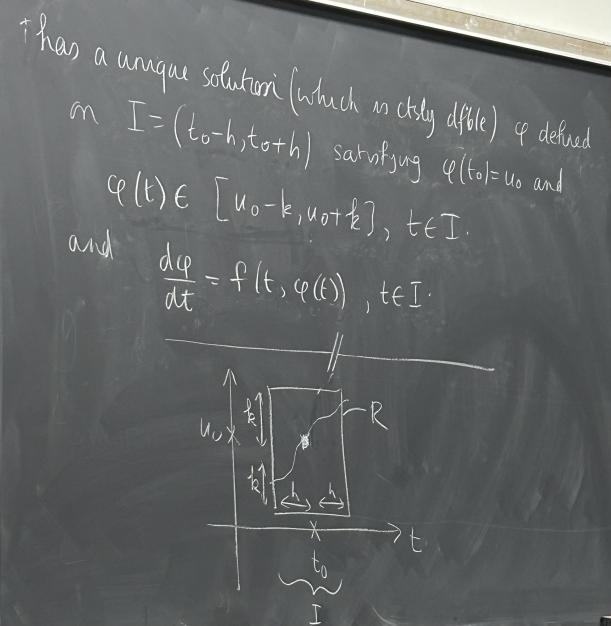 † has a unique solution (which is ctsly dfble) φ defined
on I = (t₀-h, t₀+h) satisfying φ(t₀) = u₀ and
φ(t) ∈ [u₀-k, u₀+k], t ∈ I.
and dφ/dt = f(t, φ(t)), t ∈ I.
k
R
u₀
k
h h
t
t₀
I